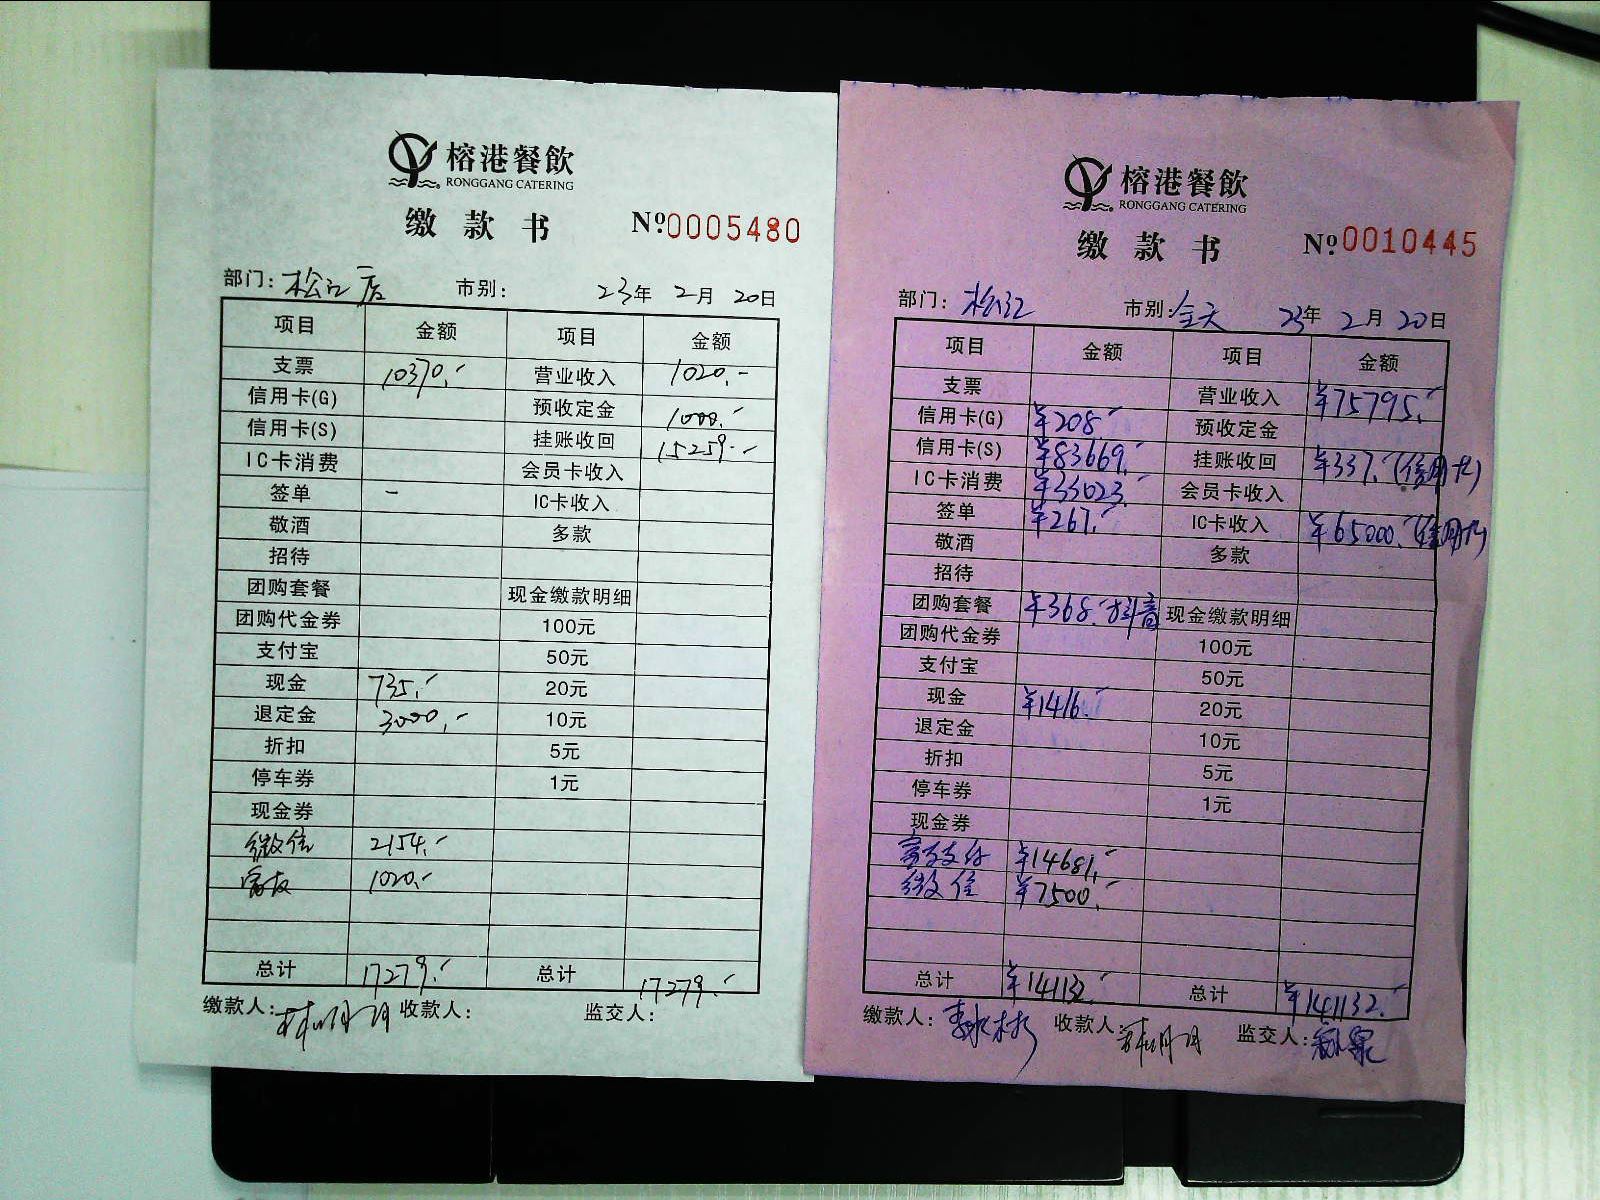 榕港餐飲
RONGGANG CATERING
缴款书 №0005480
部门: 松江店 市别: 23年 2月 20日
项目 金额 项目 金额
支票 10370.- 营业收入 1020.-
信用卡(G) 预收定金 1000.-
信用卡(S) 挂账收回 15259.-
IC卡消费 会员卡收入
签单 - IC卡收入
敬酒 多款
招待
团购套餐 现金缴款明细
团购代金券 100元
支付宝 50元
现金 735.- 20元
退定金 3000.- 10元
折扣 5元
停车券 1元
现金券
微信 2154.-
1020.-
总计 17279.- 总计 17279.-
缴款人: 收款人: 监交人:
榕港餐飲
RONGGANG CATERING
缴款书 №0010445
部门: 松江 市别: 全天 23年 2月 20日
项目 金额 项目 金额
支票 营业收入 ¥75795.-
信用卡(G) ¥208.- 预收定金
信用卡(S) ¥83669.- 挂账收回 ¥337.-(信用卡)
IC卡消费 ¥33023.- 会员卡收入
签单 ¥267.- IC卡收入 ¥65000.-(信用卡)
敬酒 多款
招待
团购套餐 ¥368.-抖音 现金缴款明细
团购代金券 100元
支付宝 50元
现金 ¥1416.- 20元
退定金 10元
折扣 5元
停车券 1元
现金券
支付 ¥14681.-
微信 ¥7500.-
总计 ¥141132.- 总计 ¥141132.-
缴款人: 收款人: 监交人: